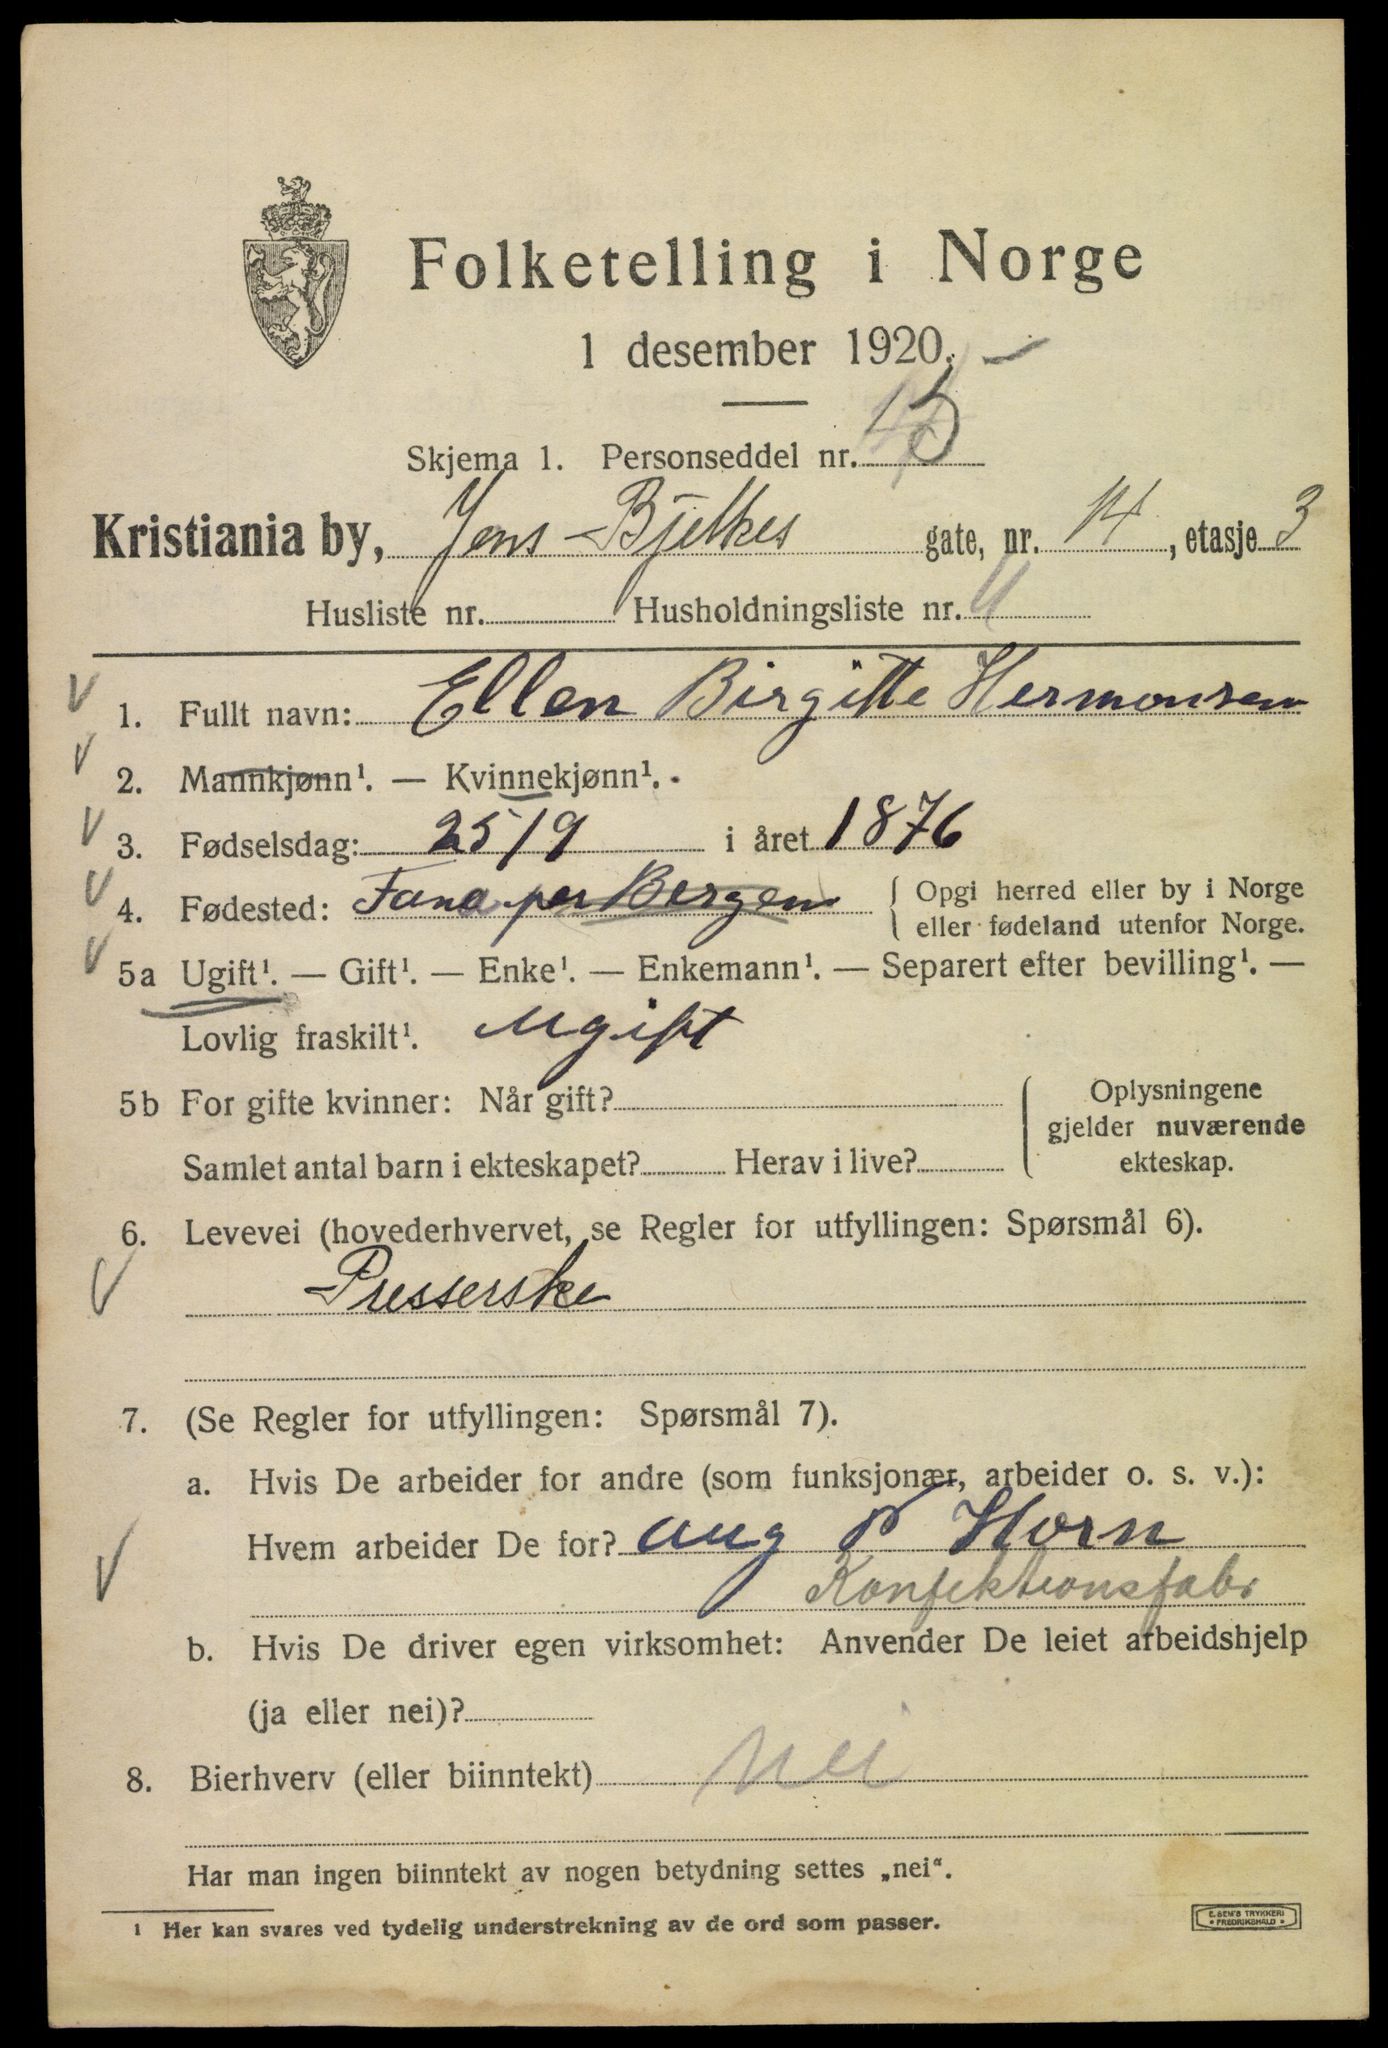 Folketelling i Norge
1 desember 1920.
Skjema 1. Personseddel nr.
Kristiania by, Jens Bjelkes gate, nr. 14, etasje 3
Husliste nr. Husholdningsliste nr.
1. Fullt navn: Ellen Birgitte Hermansen
2. Mannkjønn¹. — Kvinnekjønn¹.
3. Fødselsdag: 25/9 i året 1876
4. Fødested: Fana per Bergen { Opgi herred eller by i Norge
eller fødeland utenfor Norge.
5a Ugift¹. — Gift¹. — Enke¹. — Enkemann¹. — Separert efter bevilling¹. —
Lovlig fraskilt¹. Ugift
5b For gifte kvinner: Når gift? { Oplysningene
gjelder nuværende
Samlet antal barn i ekteskapet? Herav i live? ekteskap.
6. Levevei (hovederhvervet, se Regler for utfyllingen: Spørsmål 6).
Presserske
7. (Se Regler for utfyllingen: Spørsmål 7).
a. Hvis De arbeider for andre (som funksjonær, arbeider o. s. v.):
Hvem arbeider De for? Aug Horn
Konfektionsfabr
b. Hvis De driver egen virksomhet: Anvender De leiet arbeidshjelp
(ja eller nei)?
8. Bierhverv (eller biinntekt) nei
Har man ingen biinntekt av nogen betydning settes „nei“.
¹ Her kan svares ved tydelig understrekning av de ord som passer.
E. SEM'S TRYKKERI
• FREDRIKSHALD •